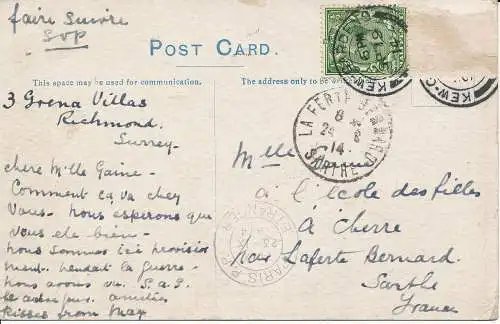 faire suivre
SVP
POST CARD.
This space may be used for communication.
The address only to be
3 Grena Villas
Richmond.
Surrey.
chère Mlle Gaine -
Comment ça va chez
Vous - nous espérons que
vous ete bien -
nous sommes ici provisoi
ment. pendant la guerre -
nous avons vu
amitiés
Kisses from May
KEW-G
LA FERTÉ BERNARD
8
24
14
SARTHE
PARIS
ETRANGER
Mlle
à l'école des filles
à Cherré
par Laferte Bernard
Sarthe
France